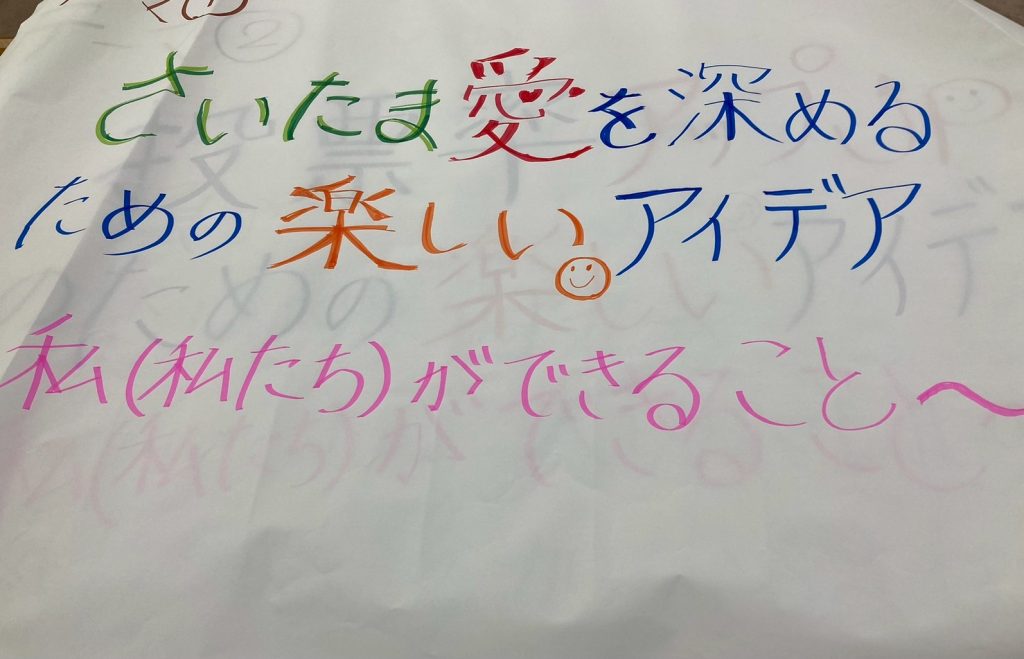 さいたま愛を深める
ための楽しいアイデア
私(私たち)ができること〜